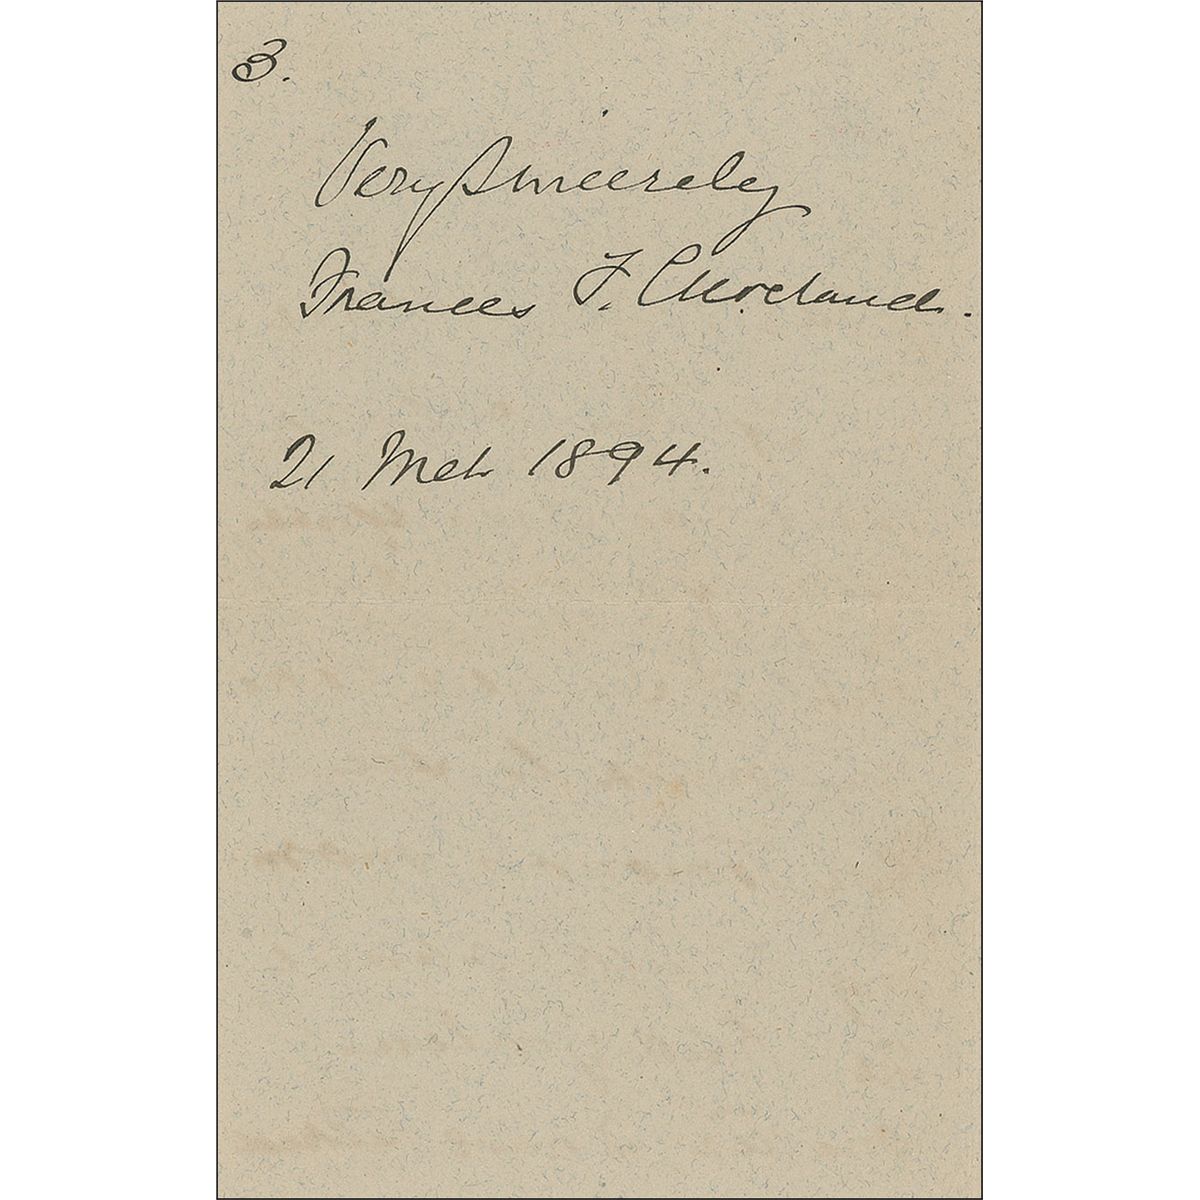 3.
Very sincerely
Frances F. Cleveland.
21 Mch 1894.